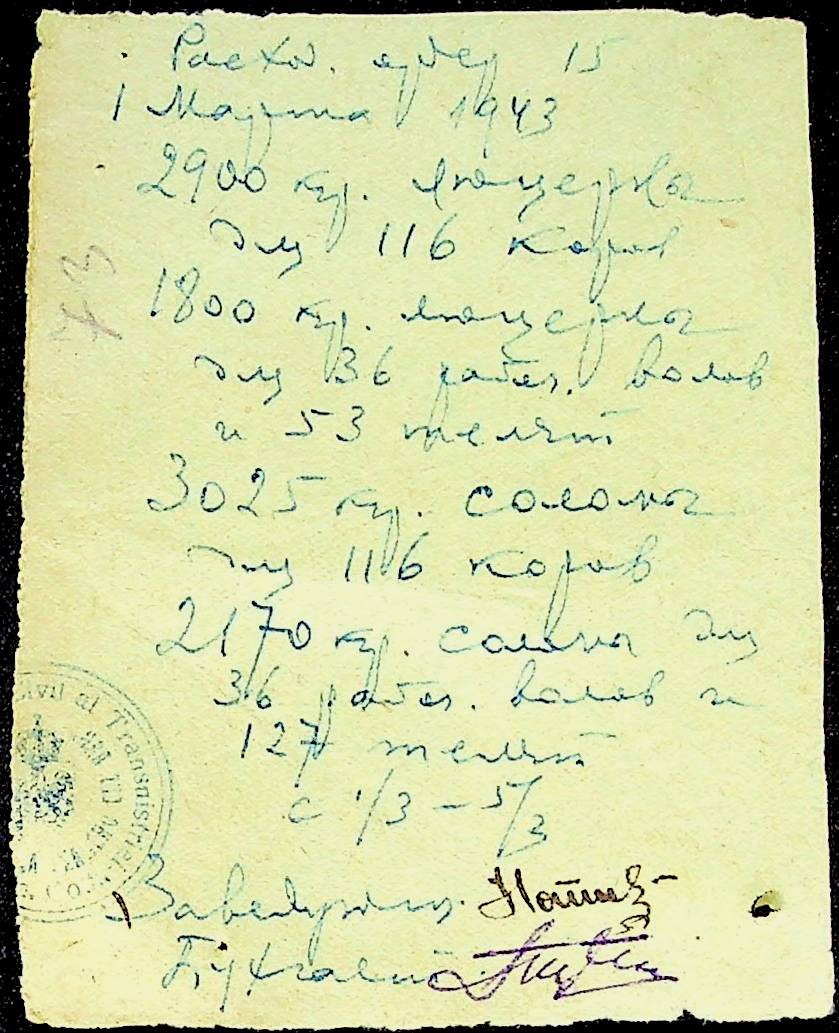 Расход. ордер 15
1 Марта 1943
2900 кгр. люцерны
для 116 коров
1800 кгр. люцерны
для 36 рабоч. волов
и 53 телят
3025 кгр. соломы
для 116 коров
2170 кгр. соломы для
36 рабоч. волов и
127 телят
с 1/3 – 5/3
Заведующ.
Бухгалт
73
Civil al Transnistriei